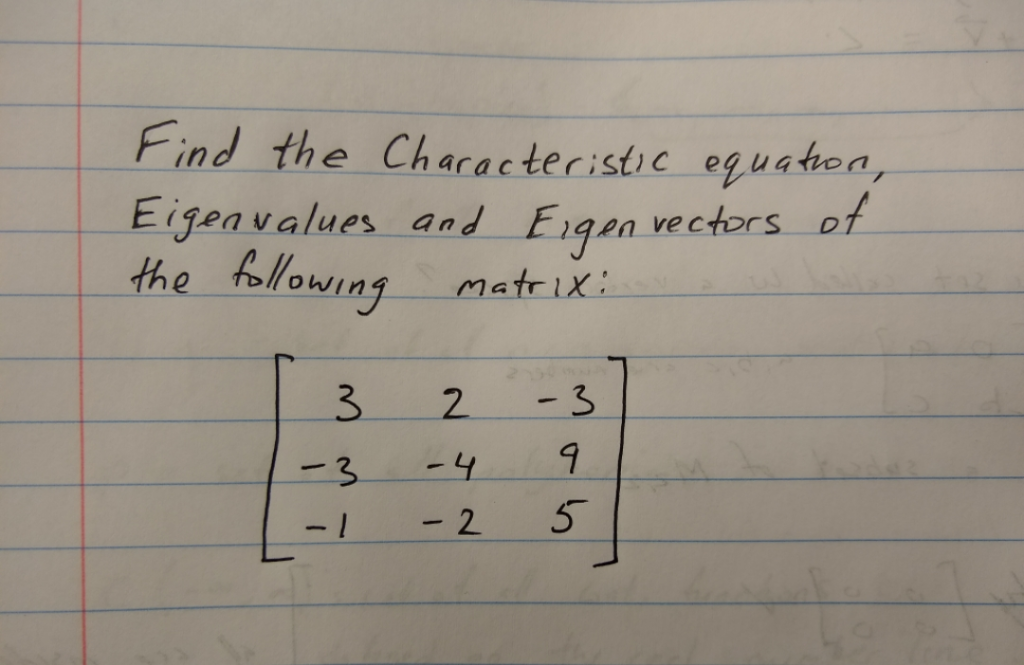 Find the Characteristic equation,
Eigenvalues and Eigenvectors of
the following matrix:
3 2 -3
-3 -4 9
-1 -2 5